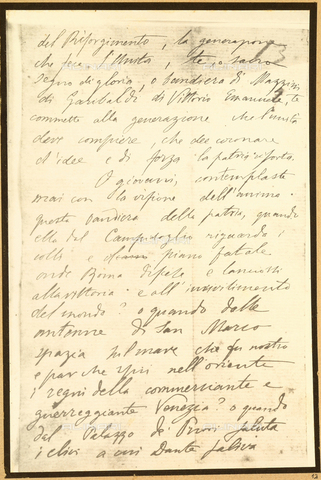 del Risorgimento, la generazione
che fece l'Unità, te, o sacro
segno di gloria, o bandiera di Mazzini
di Garibaldi di Vittorio Emanuele, te
commette alla generazione che l'unità
deve compiere, che dee coronare
d'idee e di forza la patria risorta.
O giovani, contemplaste
mai con la visione dell'anima
questa bandiera della patria, quando
ella dal Campidoglio riguarda i
colli e piano fatale
onde Roma distese e lanciossi
alla vittoria e all'incivilimento
del mondo? o quando dalle
antenne di San Marco
spazia sul mare che fu nostro
e par che spii nell'oriente
i regni della commerciante e
guerreggiante Venezia? o quando
dal Palazzo de' Priori saluta
i clivi a cui Dante saliva